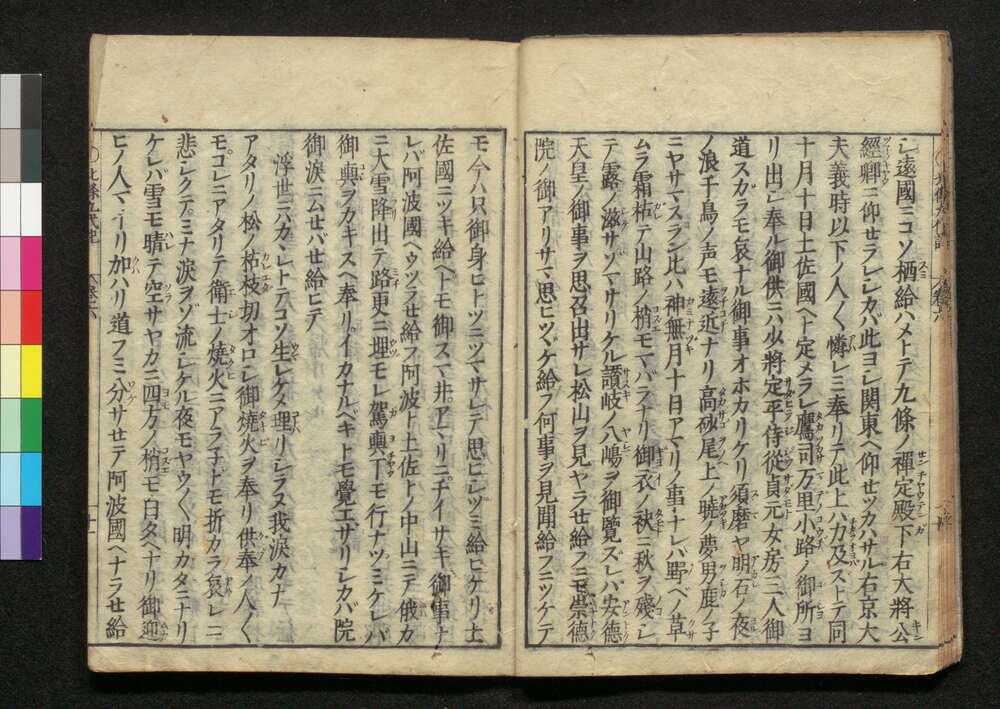 シ遠國ニコソ栖給ハメトテ九條ノ禪定殿下右大將公
經卿ニ仰セラレシカバ此ヨシ関東ヘ仰セツカハサル右京大
夫義時以下ノ人〱憐レミ奉リテ此上ハ力及ズトテ同
十月十日土佐國ヘト定メラレ鷹司万里小路ノ御所ヨ
リ出シ奉ル御供ニハ少將定平侍從貞元女房三人御
道スカラモ哀ナル御事オホカリケリ須磨ヤ明石ノ夜
ノ浪千鳥ノ声モ遠近ナリ高砂尾上ノ暁ノ夢男鹿ノ子
ニヤサマスラン比ハ神無月十日アマリノ事ナレバ野ベノ草
ムラ霜枯テ山路ノ梢モマバラナリ御衣ノ秋ニ秋ヲ殘シ
テ露ノ滋サゾマサリケル讃岐ノ八嶋ヲ御覽ズレハ安德
天皇ノ御事ヲ思召出サレ松山ヲ見ヤラセ給フニモ崇德
院ノ御アリサマ思ヒツヾケ給フ何事ヲ見聞給フニツケテ
モ今ハ只御身ヒトツニツマサレテ思ヒシヅミ給ヒケリ土
佐國ニツキ給ヘトモ御スマ井アマリニチイサキ御事ナ
レバ阿波國ヘウツラせ給フ阿波ト土佐トノ中山ニテ俄カ
ニ大雪降出テ路更ニ埋モレ駕輿丁モ行ナツミケレバ
御輿ヲカキスヘ奉リイカナルベキトモ覺エザリシカバ院
御涙ニムせバせ給ヒテ
浮世ニハカヽレトテコソ生レケメ理リシラヌ我涙カナ
アタリノ松ノ枯枝切オロシ御焼火ヲ奉リ供奉ノ人〱
モコレニアタリテ衛士ノ焼火ニアラ子ドモ折カラ哀レニ
悲シクテミナ涙ヲゾ流シケル夜モヤウ〱明カタニナリ
ケレバ雪モ晴テ空サヤカニ四方ノ梢モ白タヘナリ御迎
ヒノ人マイリ加ハリ道フミ分サせテ阿波國ヘナラせ給